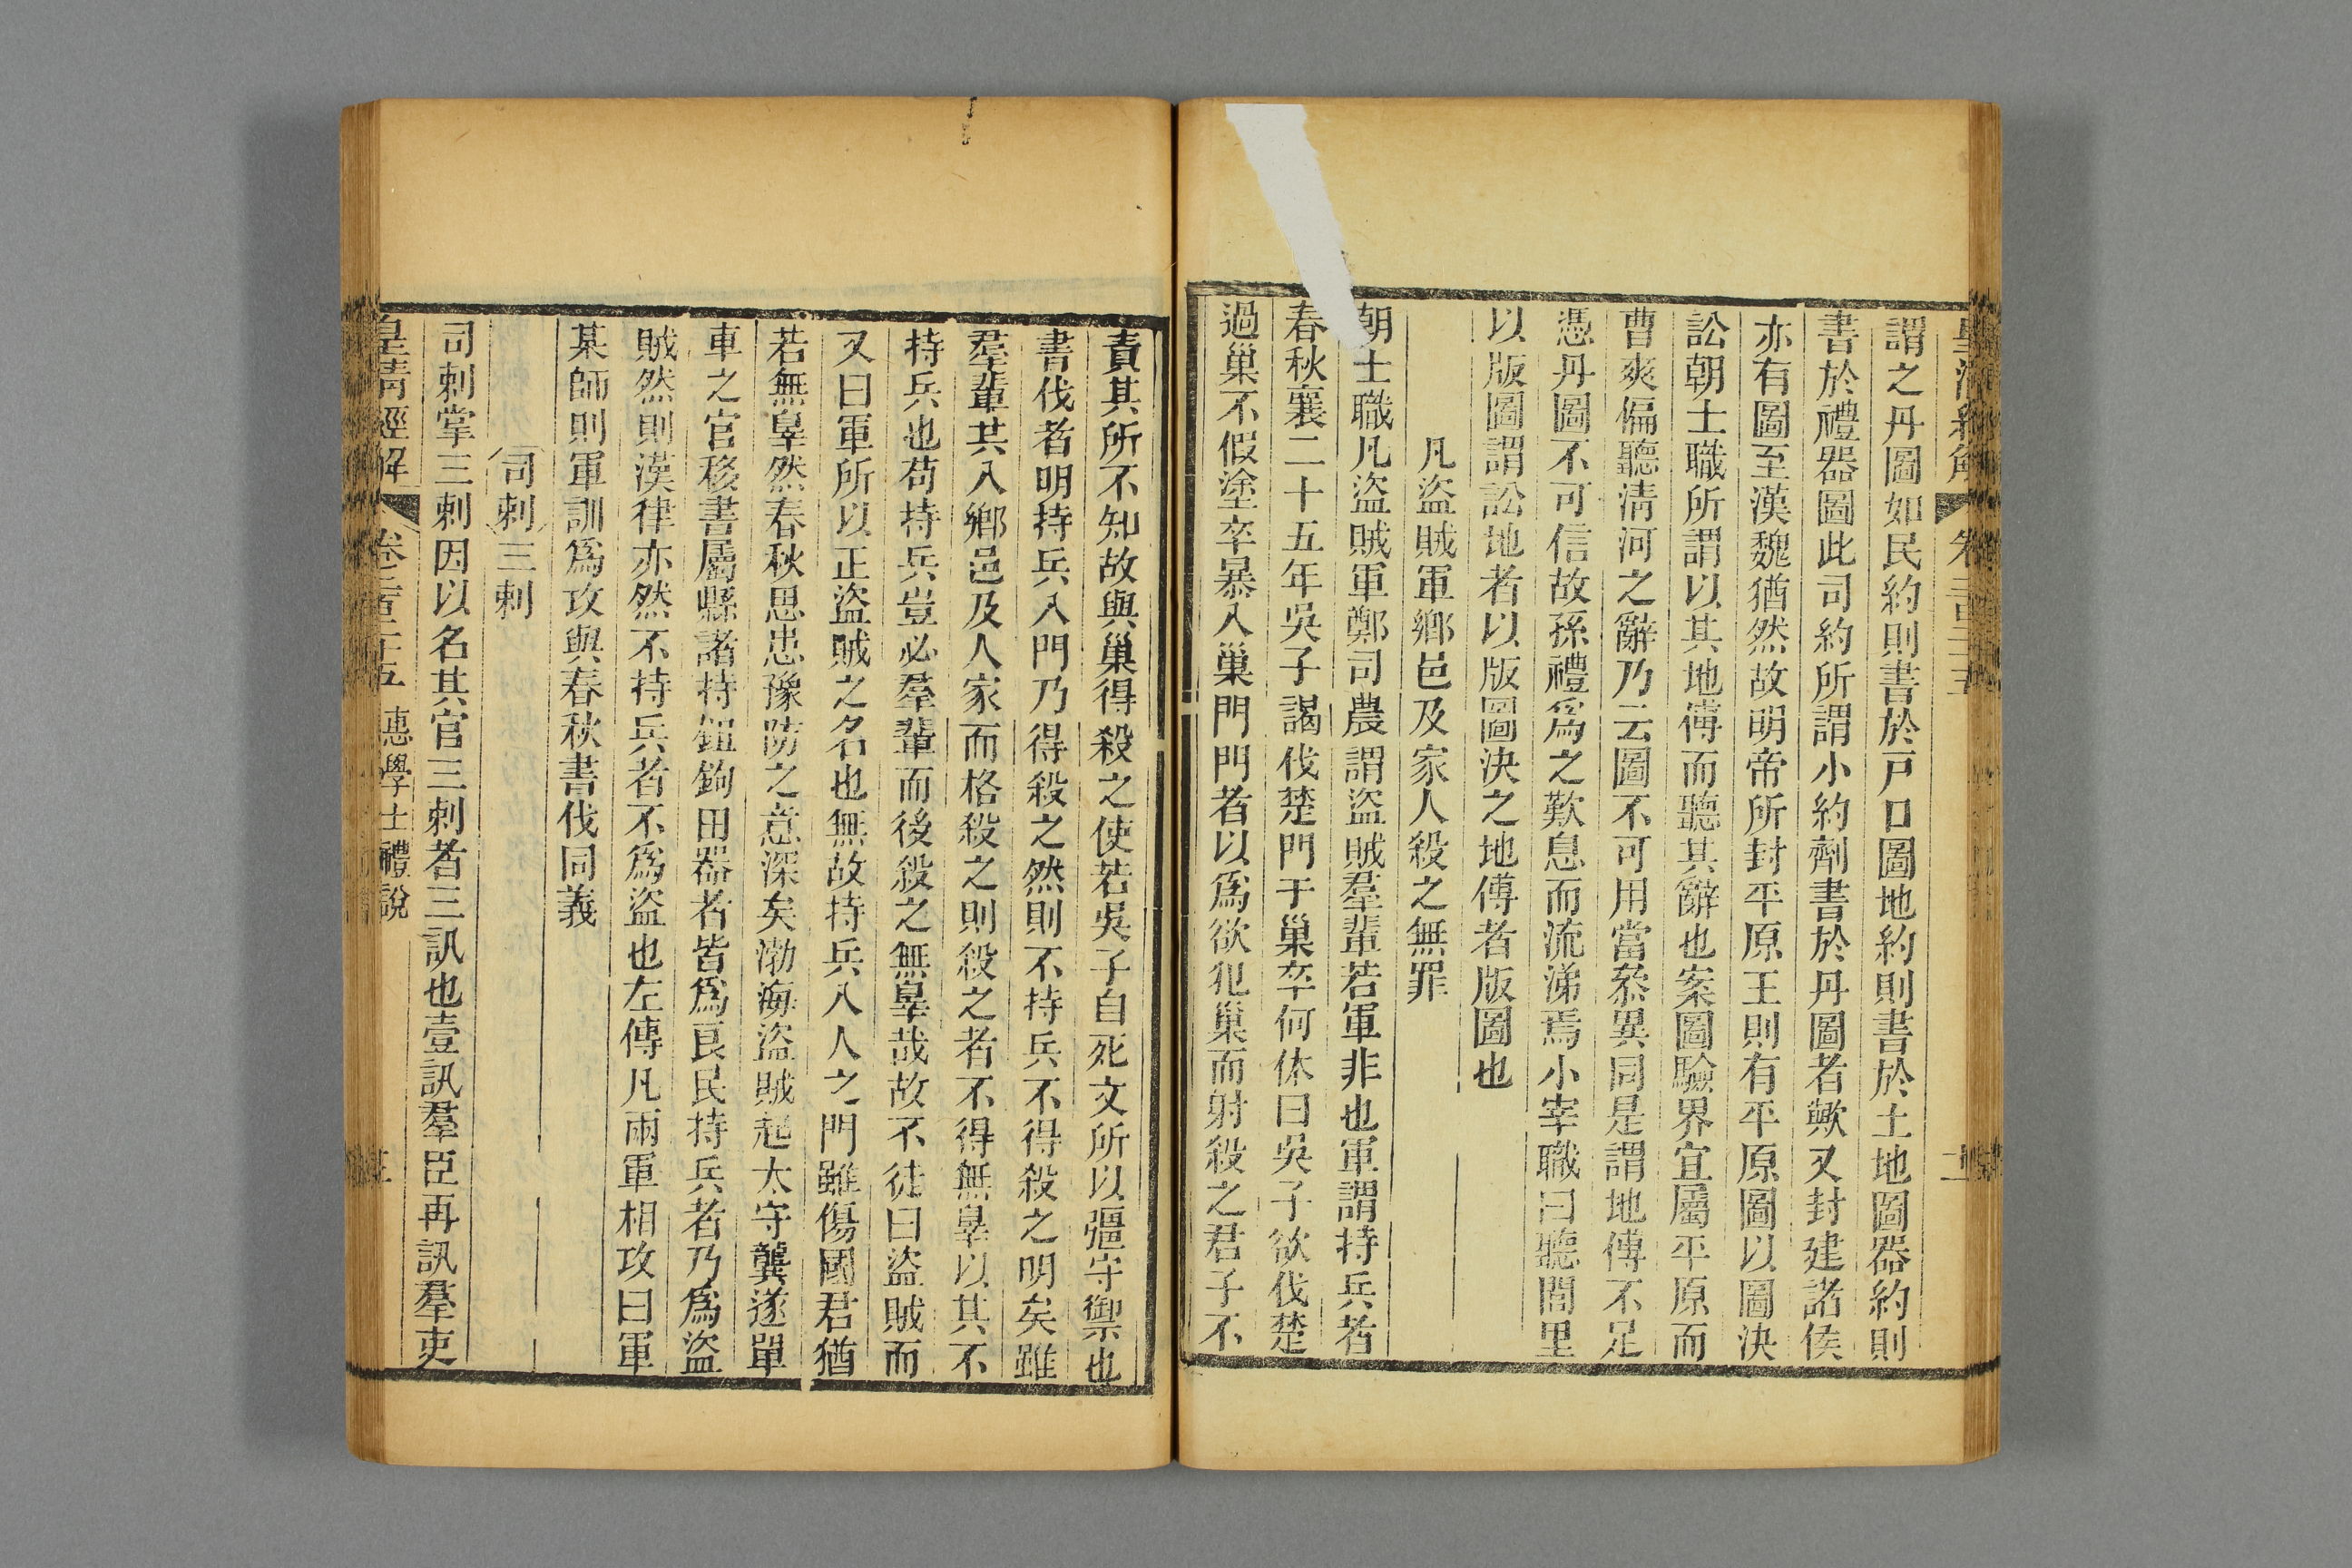 謂之丹圖如民約則書於戸口圖地約則書於土地圖器約則
書於禮器圖此司約所謂小約劑書於丹圖者歟又封建諸侯
亦有圖至漢魏猶然故明帝所封平原王則有平原圖以圖決
訟朝士職所謂以其地傅而聽其辭也案圖驗界宜屬平原而
曹爽偏聽淸河之辭乃云圖不可用當叅異同是謂地傅不足
憑丹圖不可信故孫禮爲之歎息而流涕焉小宰職曰聽閭里
以版圖謂訟地者以版圖決之地傅者版圖也
凡盜賊軍鄉邑及家人殺之無罪
朝士職凡盜賊軍鄭司農謂盜賊羣輩若軍非也軍謂持兵者
春秋襄二十五年吳子謁伐楚門于巢卒何休曰吳子欲伐楚
過巢不假塗卒暴入巢門門者以爲欲犯巢而射殺之君子不
責其所不知故與巢得殺之使若吳子自死文所以彊守禦也
書伐者明持兵入門乃得殺之然則不持兵不得殺之明矣雖
羣輩共入鄉邑及人家而格殺之則殺之者不得無辠以其不
持兵也苟持兵豈必羣輩而後殺之無辠哉故不徒曰盜賊而
又曰軍所以正盜賊之名也無故持兵入人之門雖傷國君猶
若無辠然春秋思忠豫防之意深矣渤海盜賊起太守龔遂單
車之官移書屬縣諸持鉏鉤田器者皆爲良民持兵者乃爲盜
賊然則漢律亦然不持兵者不爲盜也左傳凡兩軍相攻曰軍
某師則軍訓爲攻與春秋書伐同義
司刺三刺
司刺掌三刺因以名其官三刺者三訊也壹訊羣臣再訊羣吏
皇淸經解 卷二百二十五 惠學士禮說